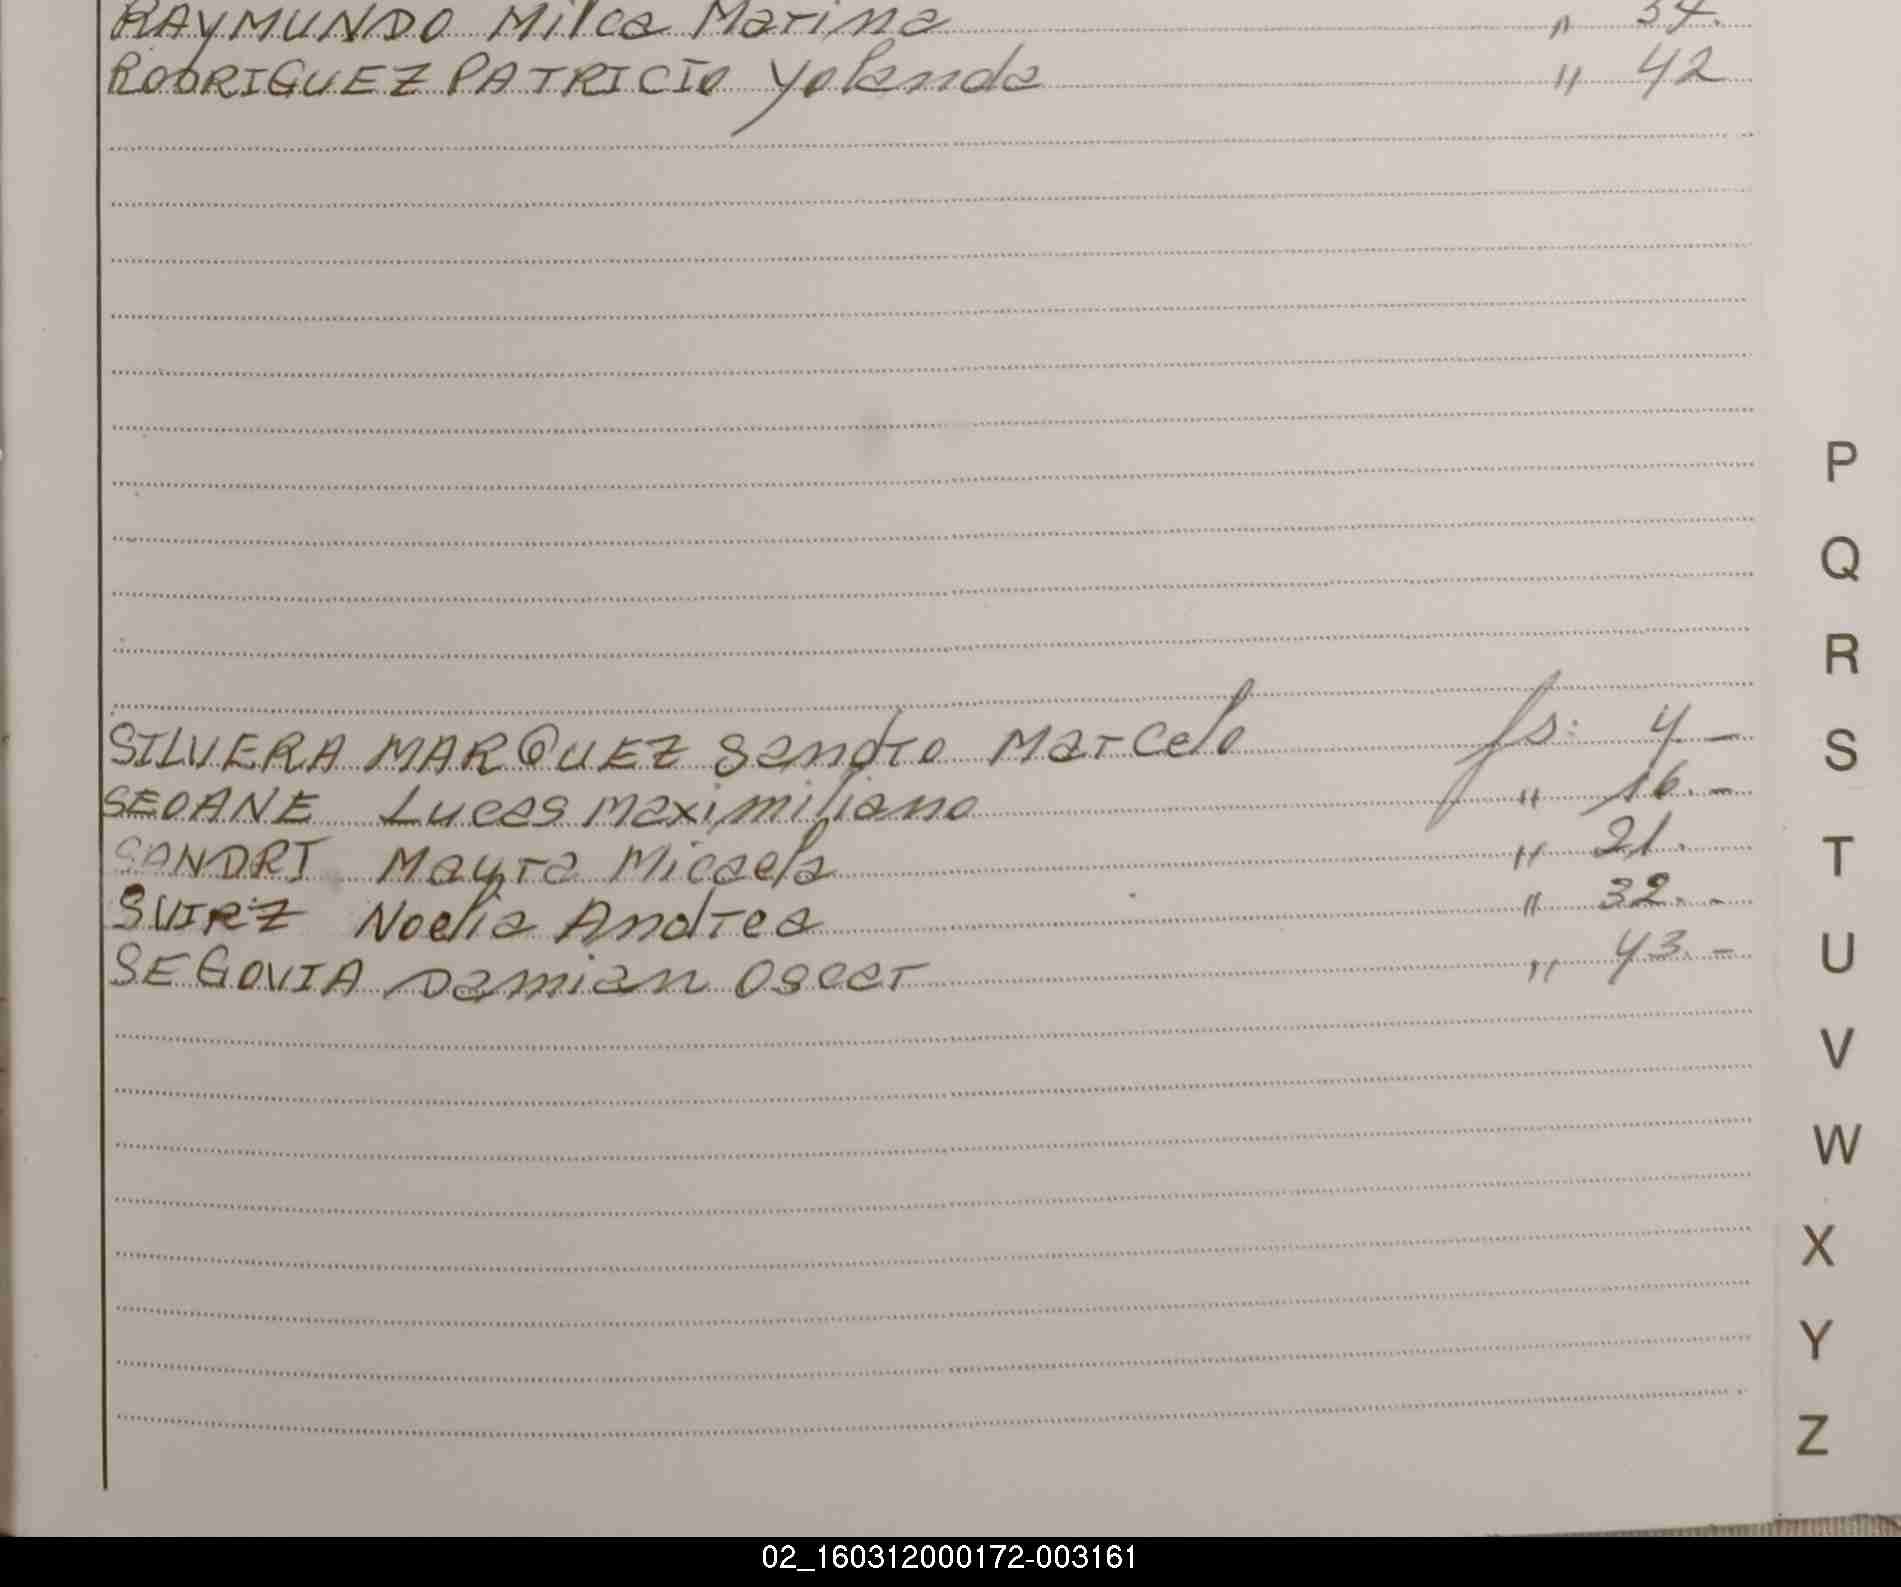 RAYMUNDO Milca Marina " 34.
RODRIGUEZ PATRICIO Yolanda " 42
SILVERA MARQUEZ Sandro Marcelo fs: 4 -
SEOANE Lucas Maximiliano " 16. -
SANDRI Mayra Micaela " 21.
SUIRZ Noelia Andrea " 32. -
SEGOVIA Damian Oscar " 43. -
P
Q
R
S
T
U
V
W
X
Y
Z
02_160312000172-003161